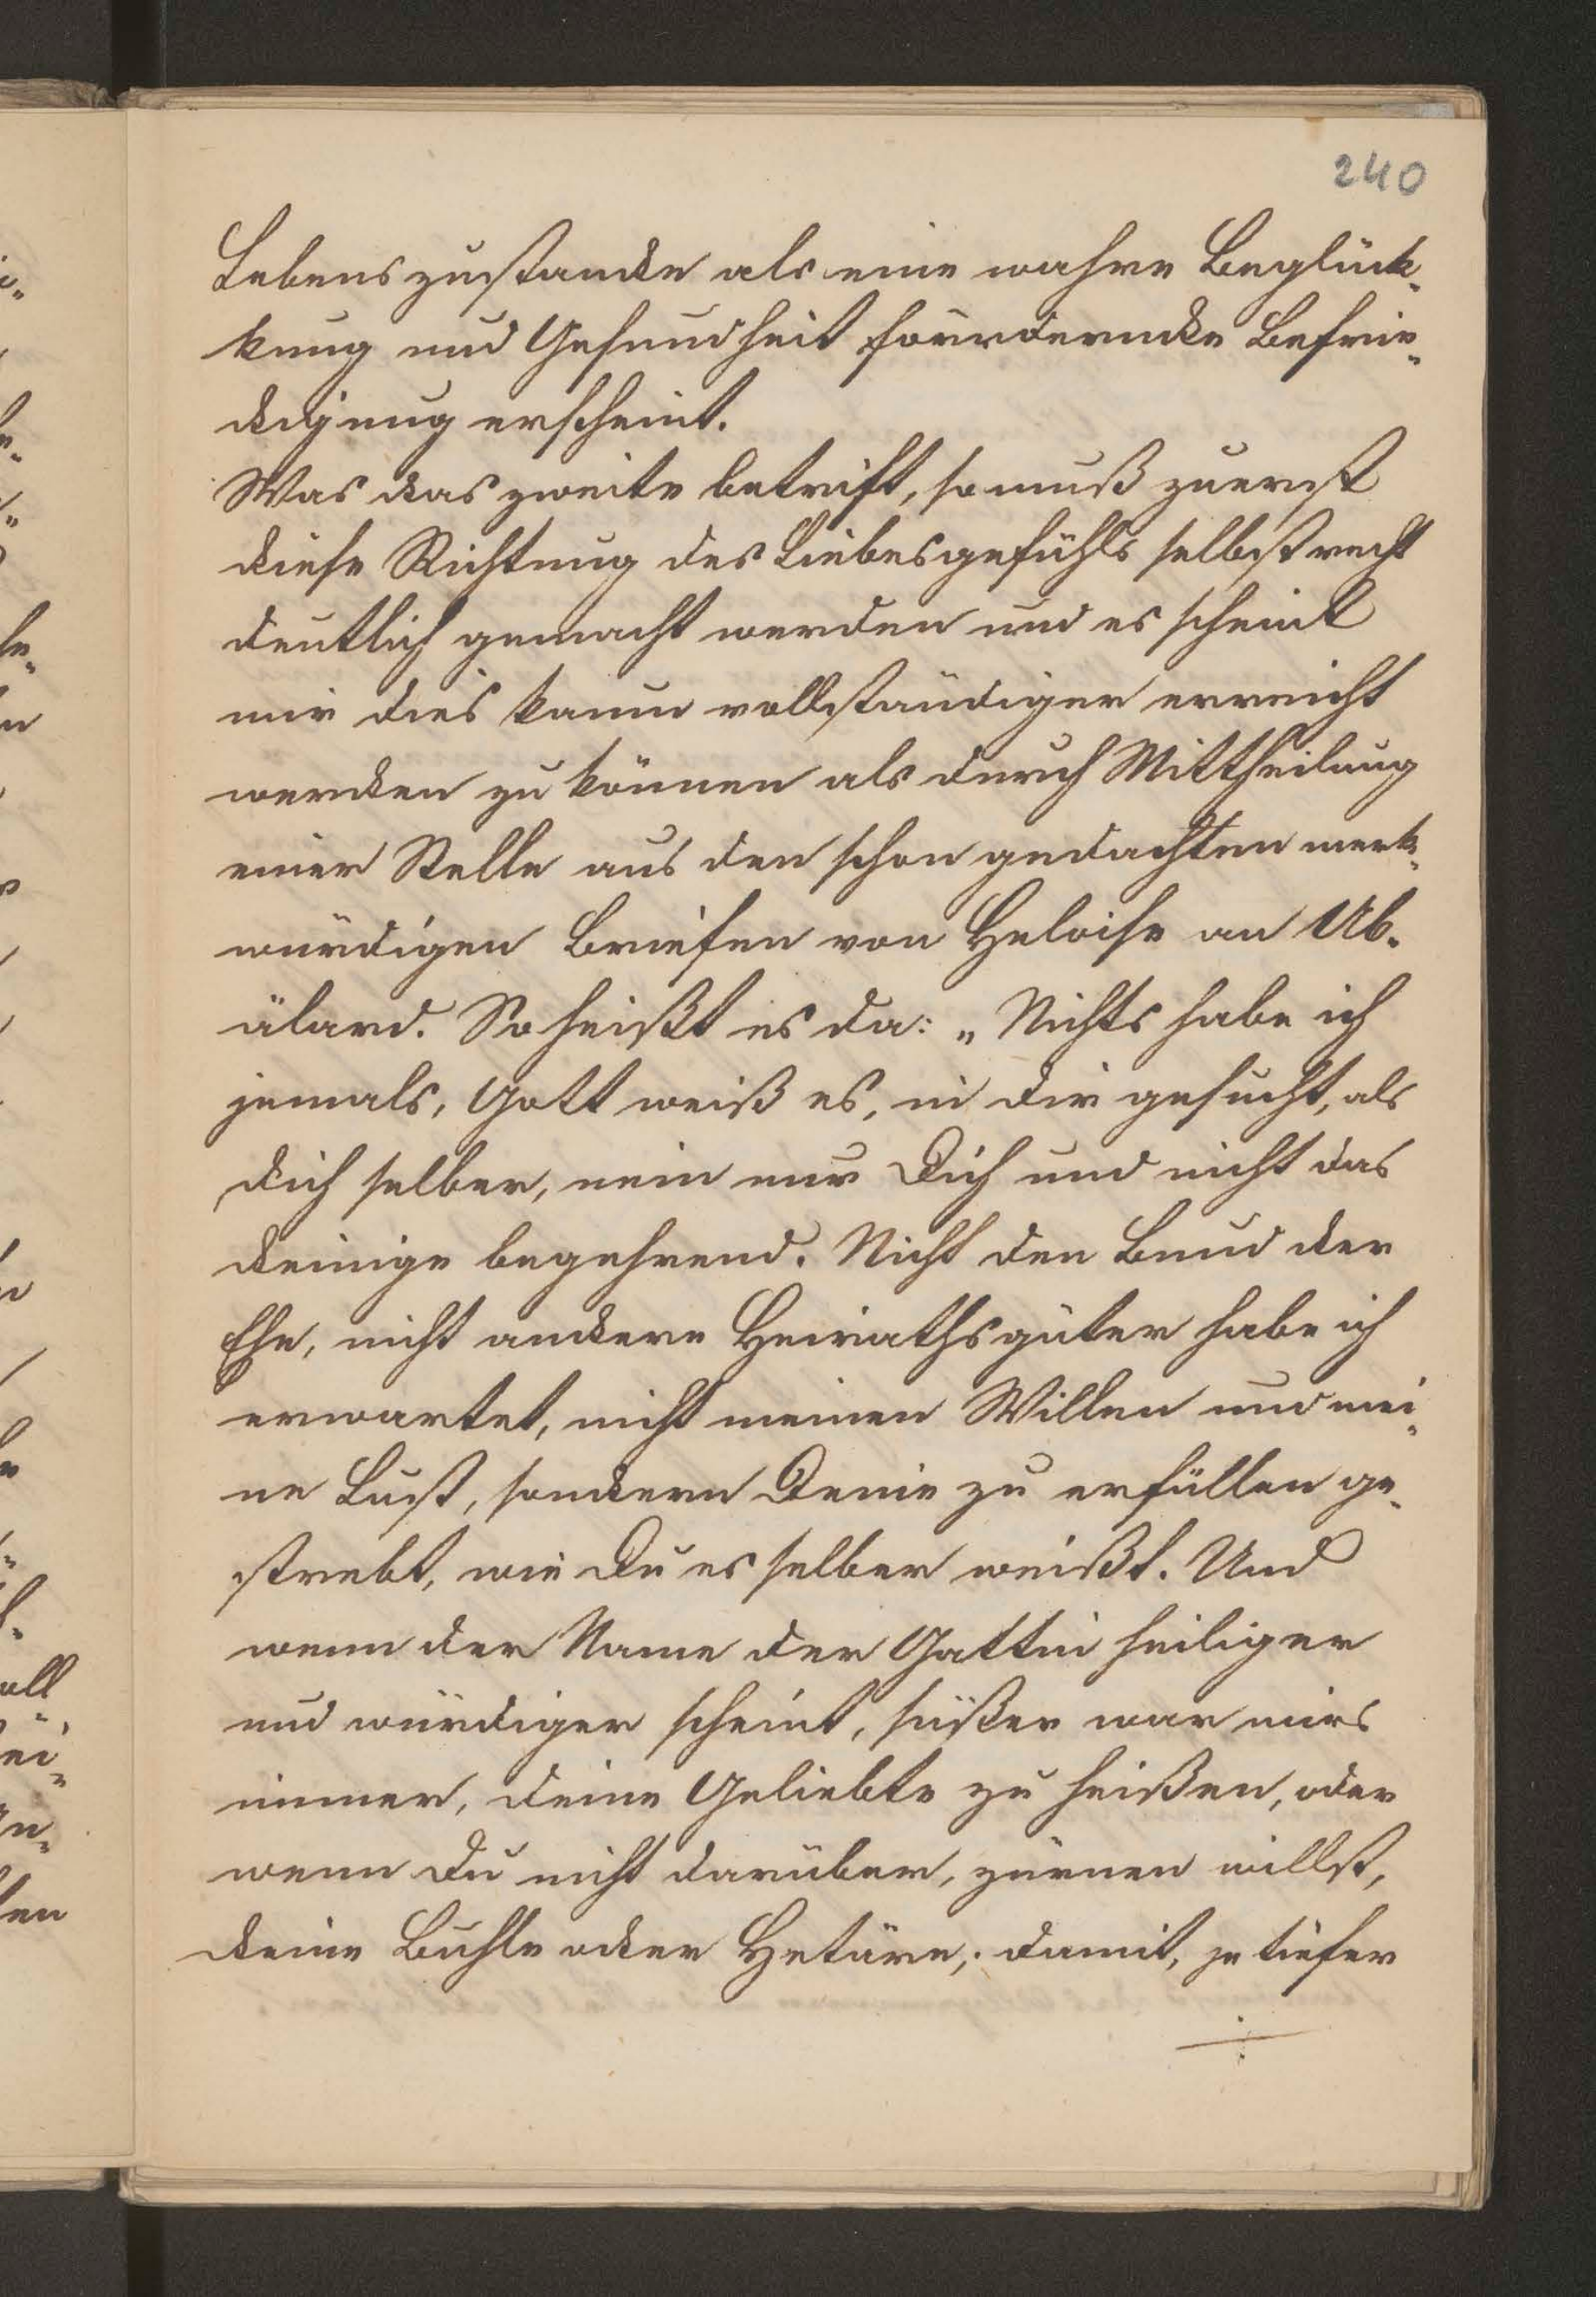 240
Lebenszustande als eine wahre Beglück-
kung und Gesundheit fördernde Befrie-
digung erscheint.
Was das zweite betrift, so muß zuerst
diese Richtung des Liebesgefühls selbst recht
deutlich gemacht werden und es scheint
mir dies kaum vollständiger erreicht
werden zu können als durch Mittheilung
einer Stelle aus den schon gedachten merk-
würdigen Briefen von Heloise an Ab-
älard. So heißt es da: „Nichts habe ich
jemals, Gott weiß es, in dir gesucht, als
dich selber, nein nur Dich und nicht das
deinige begehrend. Nicht den Bund der
Ehe, nicht andere Heirathsgüter habe ich
erwartet, nicht meinen Willen und mei-
ne Lust, sondern Deine zu erfüllen ge-
strebt, wie Du es selber weißt. Und
wenn der Name der Gattin heiliger
und würdiger scheint, süßer war mirs
immer, deine Geliebte zu heißen, oder
wenn Du nicht darüber, zürnen willst,
deine Buhle oder Hetäre; damit, je tiefer